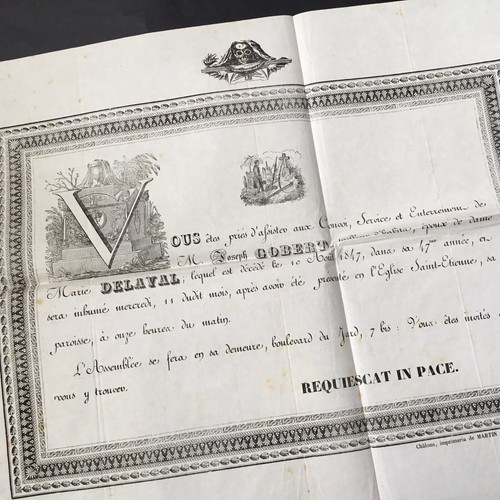 VOUS êtes priés d'assister aux Convoi, Service et Enterrement de
M. Joseph GOBERT, époux de dame
Marie DELAVAL, lequel est décédé le 10 Août 1847, dans sa 47me année, et
sera inhumé mercredi, 11 dudit mois, après avoir été présenté en l'Eglise Saint-Etienne, sa
paroisse, à onze heures du matin.
L'Assemblée se fera en sa demeure, boulevard du Jard, 7 bis : Vous êtes invités
vous y trouver.
REQUIESCAT IN PACE.
Châlons, imprimerie de MARTIN